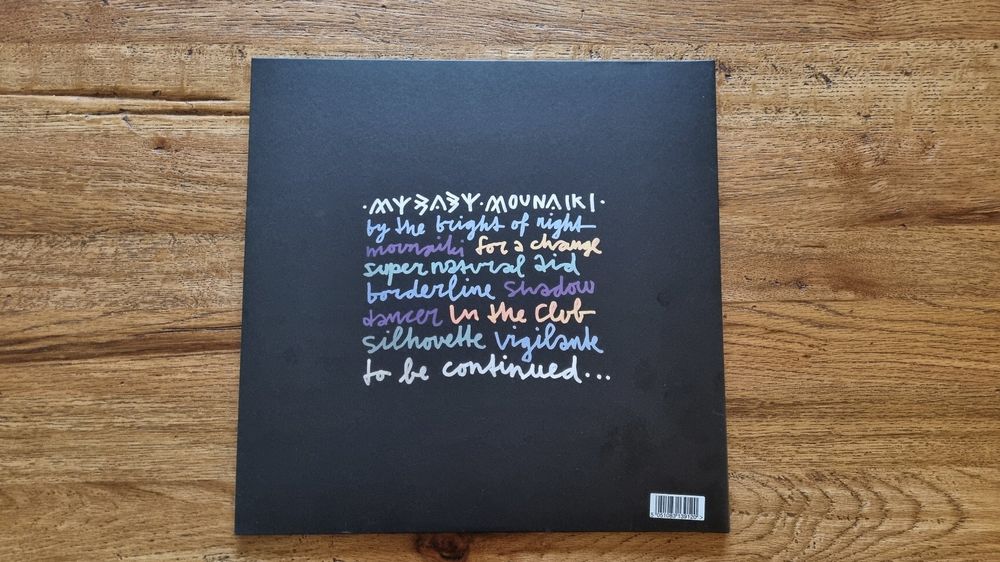 ·MY BABY·MOUNAIKI·
by the bright of night
mounaiki for a change
supernatural aid
borderline shadow
dancer In the Club
silhouette vigilante
to be continued...